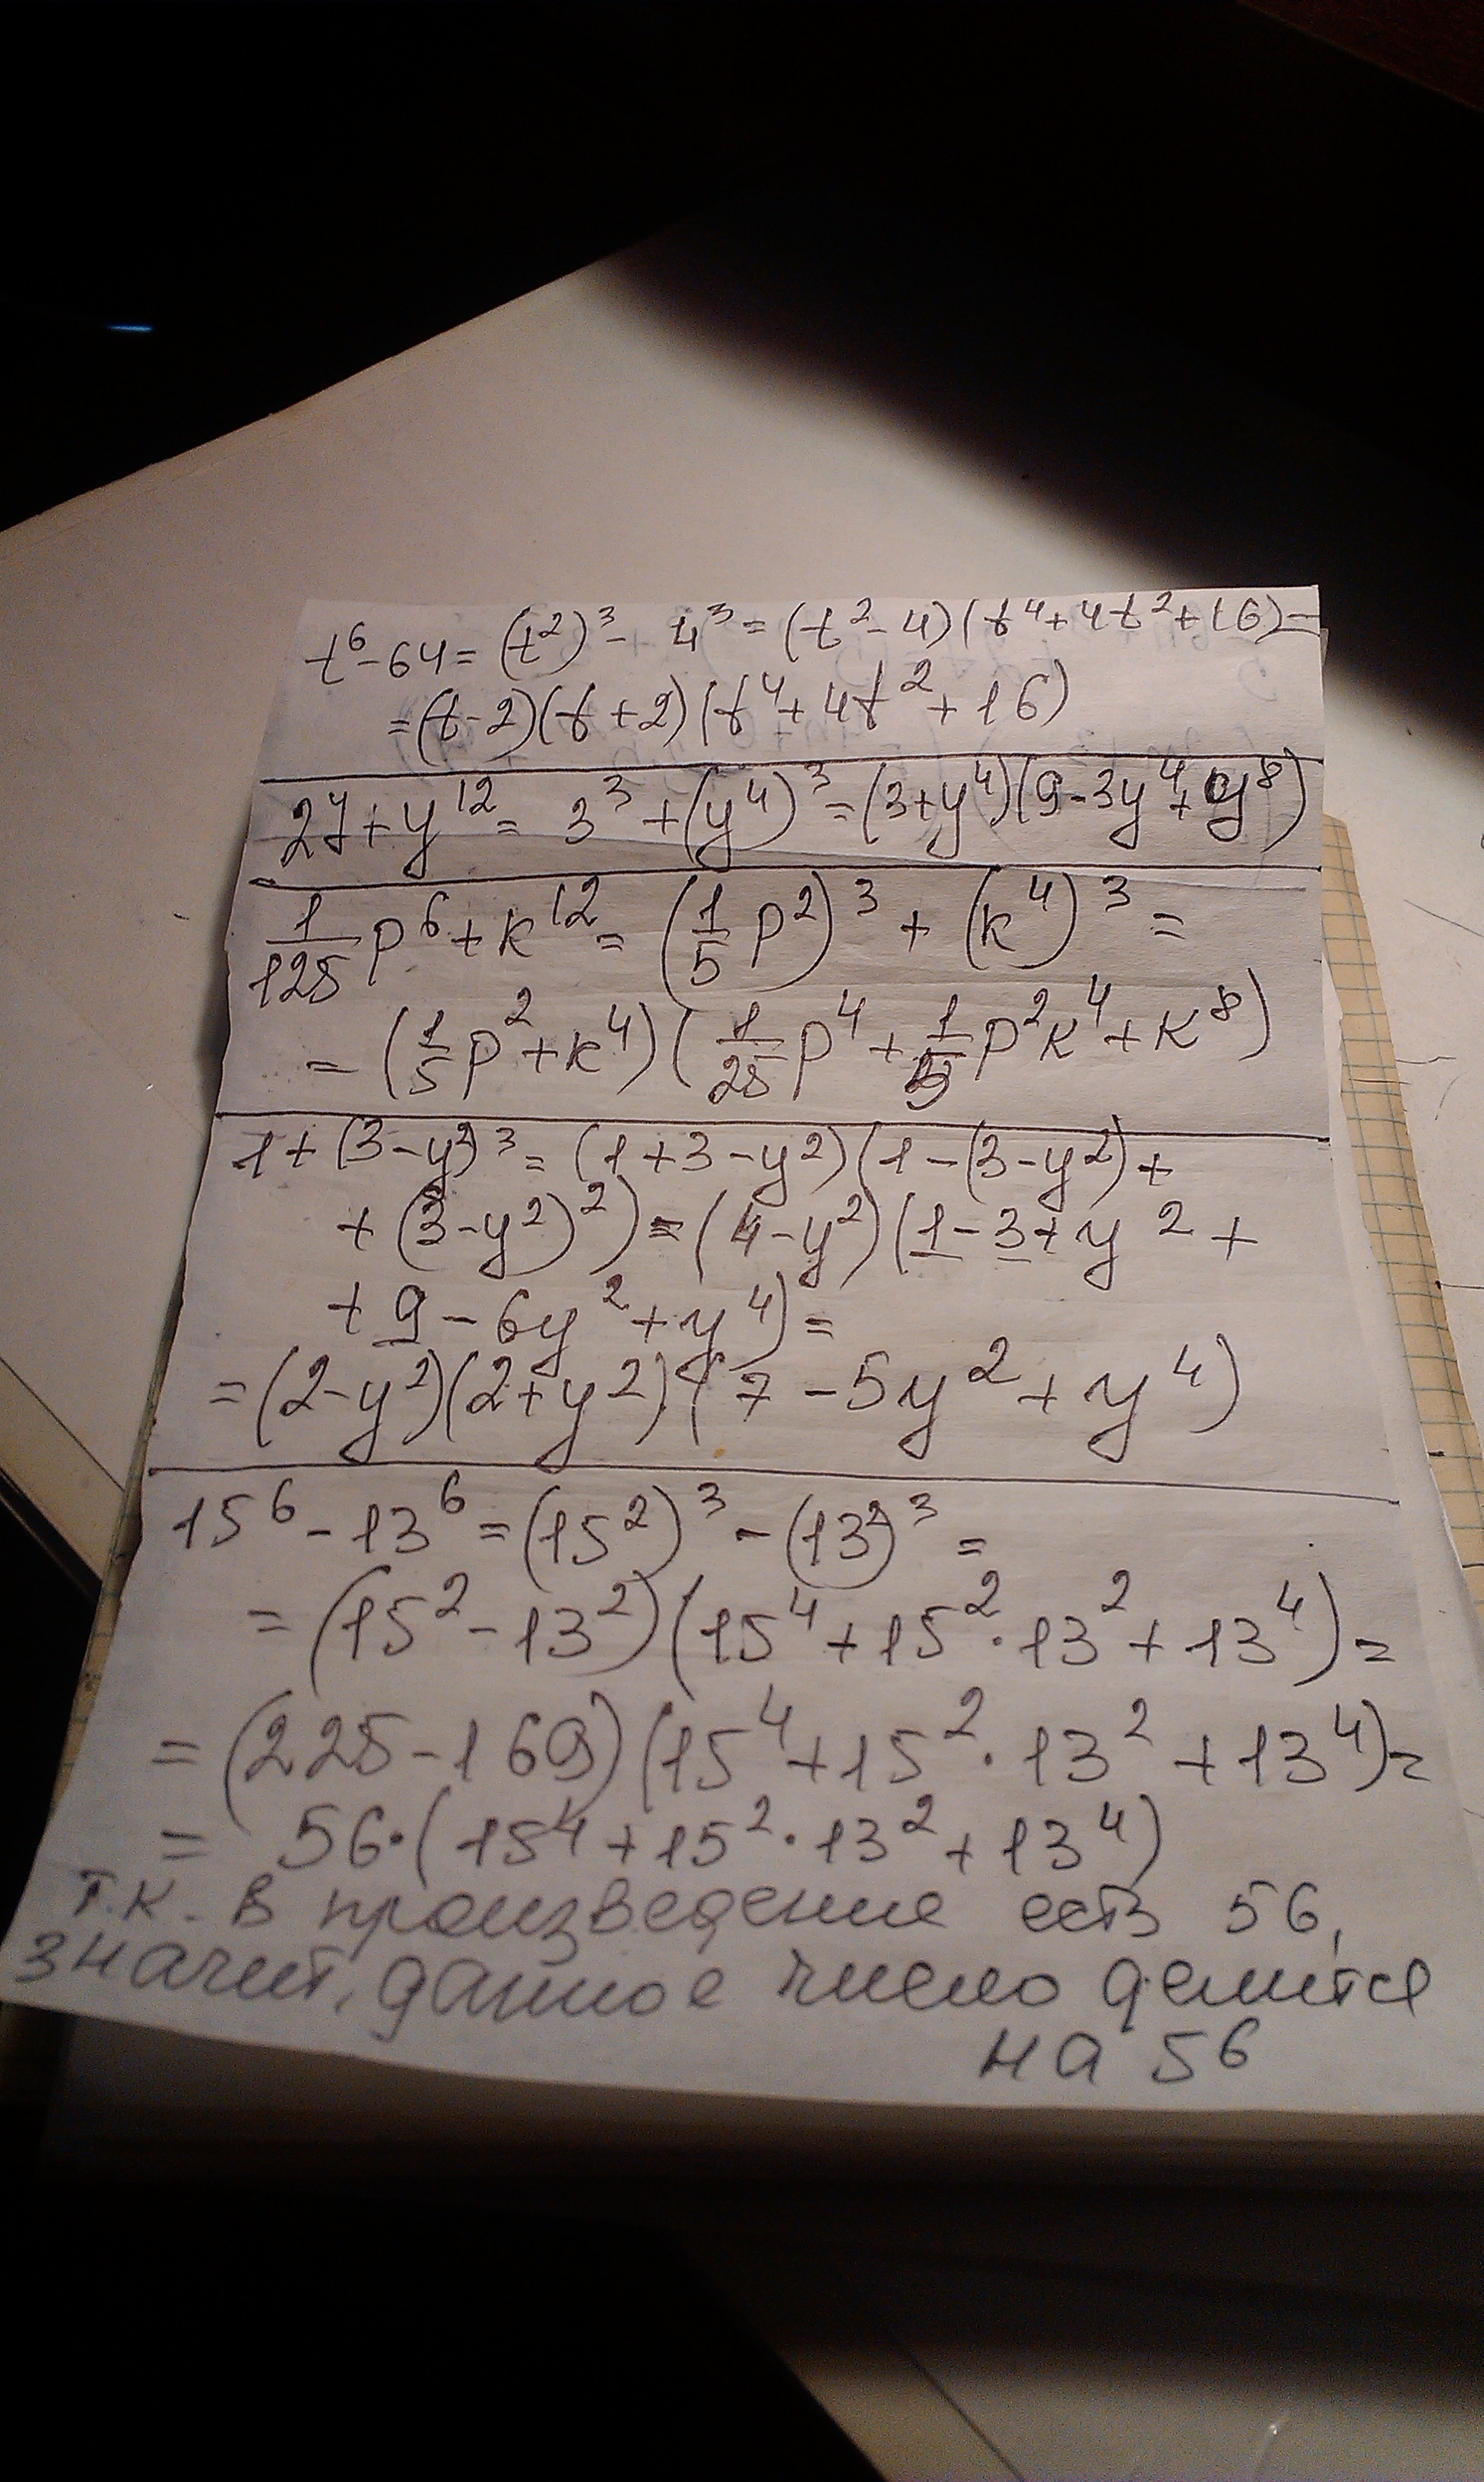 t⁶-64=(t²)³-4³=(t²-4)(t⁴+4t²+16)=
=(t-2)(t+2)(t⁴+4t²+16)
27+y¹²=3³+(y⁴)³=(3+y⁴)(9-3y⁴+y⁸)
1/125 p⁶+k¹²=(1/5 p²)³+(k⁴)³=
=(1/5 p²+k⁴)(1/25 p⁴+1/5 p²k⁴+k⁸)
1+(3-y²)³=(1+3-y²)(1-(3-y²)+
+(3-y²)²)=(4-y²)(1-3+y²+
+9-6y²+y⁴)=
=(2-y²)(2+y²)(7-5y²+y⁴)
15⁶-13⁶=(15²)³-(13²)³=
=(15²-13²)(15⁴+15²·13²+13⁴)=
=(225-169)(15⁴+15²·13²+13⁴)=
=56·(15⁴+15²·13²+13⁴)
т.к. в произведение есть 56,
значит, данное число делится
на 56